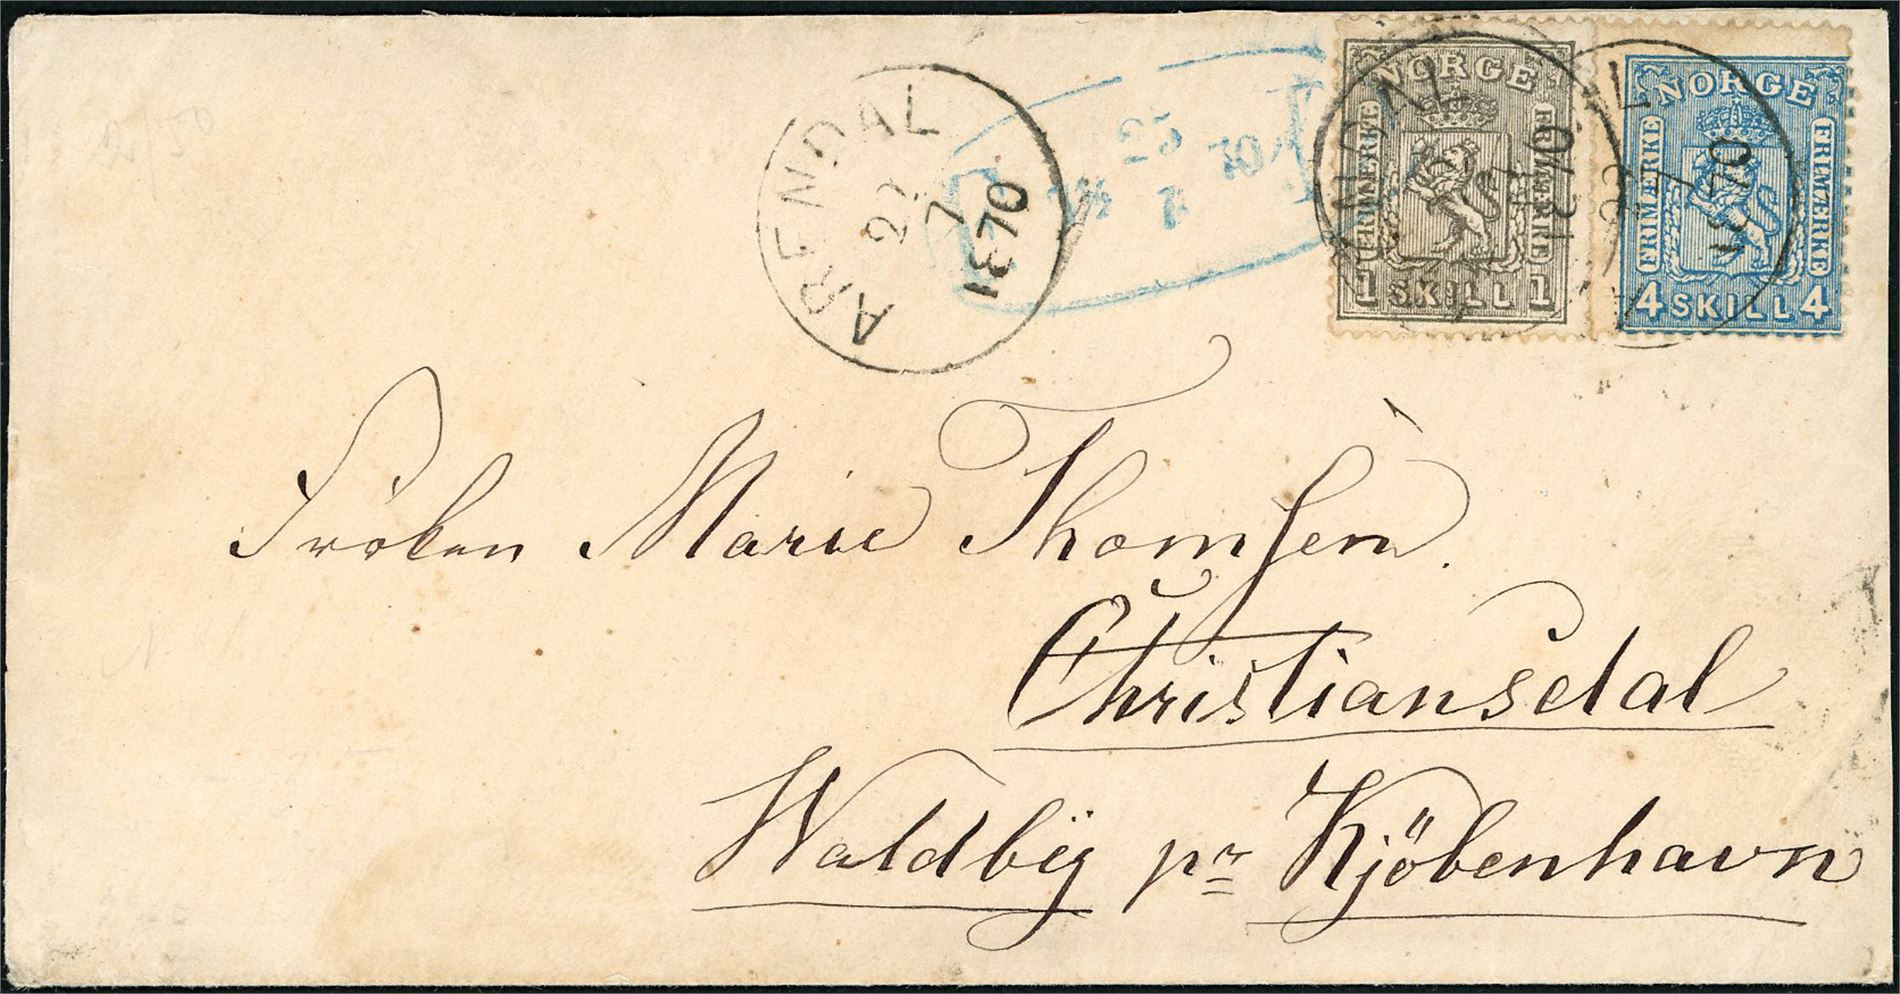 ARENDAL
22
7
1870
25
7
70
NORGE
FRIMÆRKE
FRIMÆRKE
1 SKILL 1
1870
NORGE
FRIMÆRKE
FRIMÆRKE
4 SKILL 4
1870
Fröken Marie Thomsen.
Christiansdal
Waldbÿ pr Kjöbenhavn